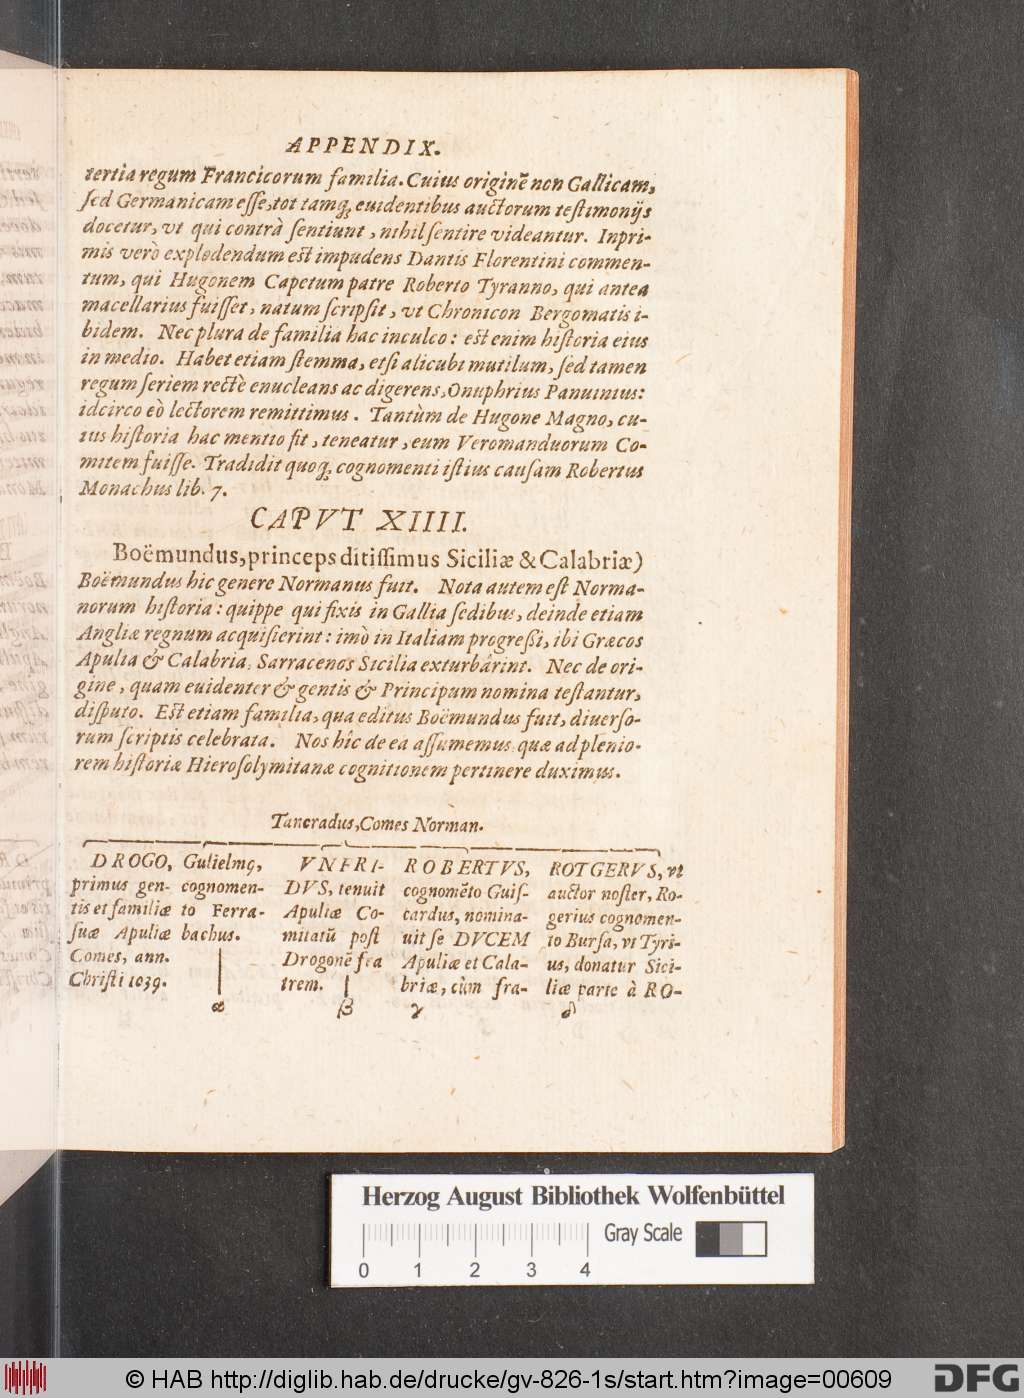 APPENDIX.
tertia regum Francicorum familia. Cuius originē non Gallicam,
ſed Germanicam eſſe, tot tamq́; euidentibus auctorum teſtimonijs
docetur, vt qui contrà ſentiunt, nihil ſentire videantur. Inpri-
mis verò explodendum eſt impudens Dantis Florentini commen-
tum, qui Hugonem Capetum patre Roberto Tyranno, qui antea
macellarius fuiſſet, natum ſcripſit, vt Chronicon Bergomatis i-
bidem. Nec plura de familia hac inculco: eſt enim hiſtoria eius
in medio. Habet etiam ſtemma, etſi alicubi mutilum, ſed tamen
regum ſeriem rectè enucleans ac digerens, Onuphrius Panuinius:
idcirco eò lectorem remittimus. Tantùm de Hugone Magno, cu-
ius hiſtoria hac mentio fit, teneatur, eum Veromanduorum Co-
mitem fuiſſe. Tradidit quoq́; cognomenti iſtius cauſam Robertus
Monachus lib. 7.
CAPVT XIIII.
Boëmundus, princeps ditiſſimus Siciliæ & Calabriæ)
Boëmundus hic genere Normanus fuit. Nota autem eſt Norma-
norum hiſtoria: quippe qui fixis in Gallia ſedibus, deinde etiam
Angliæ regnum acquiſierint: imò in Italiam progreßi, ibi Græcos
Apulia & Calabria, Sarracenos Sicilia exturbârint. Nec de ori-
gine, quam euidenter & gentis & Principum nomina teſtantur,
diſputo. Eſt etiam familia, qua editus Boëmundus fuit, diuerſo-
rum ſcriptis celebrata. Nos hîc de ea aſſumemus quæ ad plenio-
rem hiſtoriæ Hieroſolymitanæ cognitionem pertinere duximus.
Tancradus, Comes Norman.
DROGO,
primus gen-
tis et familiæ
ſuæ Apuliæ
Comes, ann.
Chriſti 1039.
Gulielmꝰ,
cognomen-
to Ferra-
bachus.
α
VNFRI-
DVS, tenuit
Apuliæ Co-
mitatū poſt
Drogonē fra
trem.
β
ROBERTVS,
cognomēto Guiſ-
cardus, nomina-
uit ſe DVCEM
Apuliæ et Cala-
briæ, cùm fra-
γ
ROTGERVS, vt
auctor noſter, Ro-
gerius cognomen-
to Burſa, vt Tyri-
us, donatur Sici-
liæ parte à RO-
δ
Herzog August Bibliothek Wolfenbüttel
Gray Scale
0 1 2 3 4
© HAB http://diglib.hab.de/drucke/gv-826-1s/start.htm?image=00609
DFG